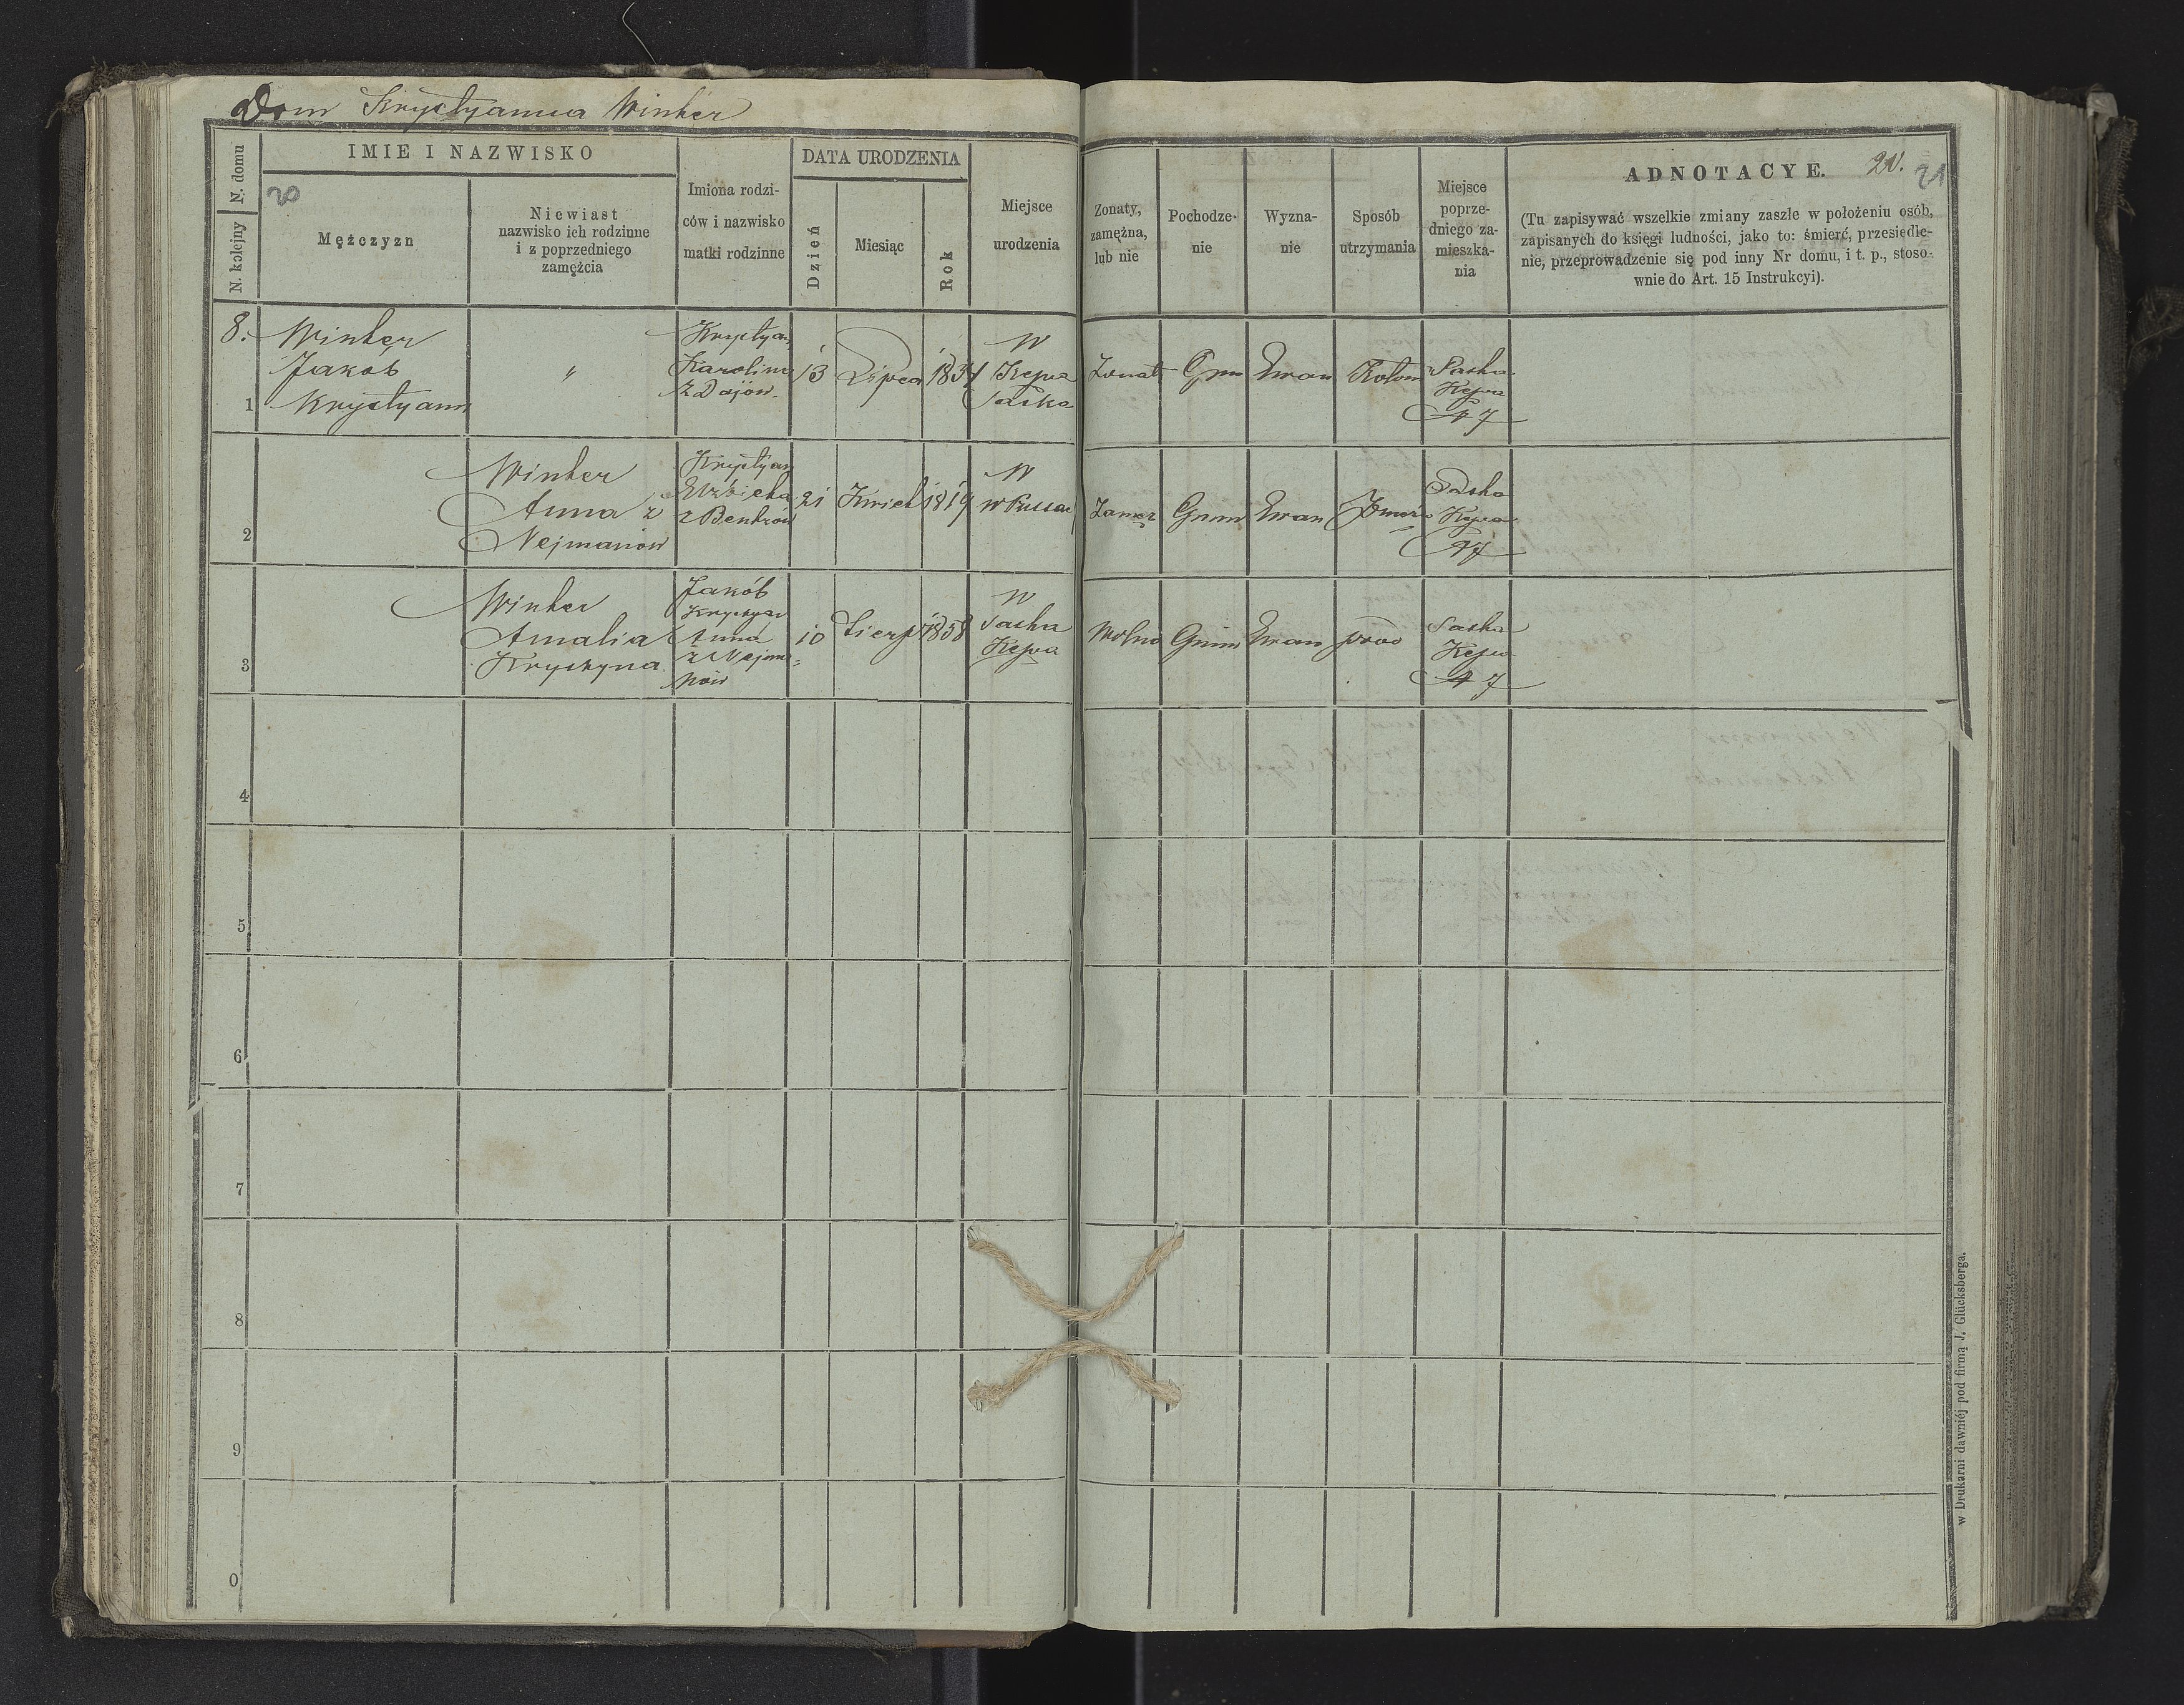 Dom Krystyanna Winter
N. domu
N. kolejny
IMIE I NAZWISKO
20
Mężczyzn
Niewiast
nazwisko ich rodzinne
i z poprzedniego
zamężcia
Imiona rodzi-
ców i nazwisko
matki rodzinne
DATA URODZENIA
Dzień
Miesiąc
Rok
Miejsce
urodzenia
Zonaty,
zamężna,
lub nie
Pochodze-
nie
Wyzna-
nie
Sposób
utrzymania
Miejsce
poprze-
dniego za-
mieszka-
nia
ADNOTACYE. 20. 21
(Tu zapisywać wszelkie zmiany zaszłe w położeniu osób,
zapisanych do księgi ludności, jako to: śmierć, przesiedle-
nie, przeprowadzenie się pod inny Nr domu, i t. p., stoso-
wnie do Art. 15 Instrukcyi).
8.
1
Winter
Jakób
Krystyann
"
Krystyan
Karolina
13
Lipca
1834
W
Kępa
Saska
Zonat
Gmi
Ewan
Kolon
Saska
Kępa
N 7
2
Winter
Anna z
Nejmanów
Krystyan
Elżbieta
21
Kwiet
1819
W
Zamęz
Gmin
Ewan
Saska
Kępa
N 7
3
Winter
Amalia
Krystyna
Jakób
Krystyan
Anna
z Nejma-
nów
10
Sierp
1858
W
Saska
Kępa
Wolna
Gmin
Ewan
Saska
Kępa
N 7
4
5
6
7
8
9
0
w Drukarni dawniéj pod firmą J. Glücksberga.